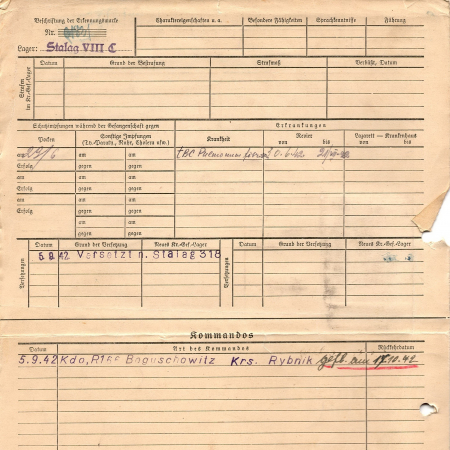 Beschriftung der Erkennungsmarke
Nr.
Lager: Stalag VIII C
Charaktereigenschaften u. a.
Besondere Fähigkeiten
Sprachkenntnisse
Führung
Strafen im Kr.-Gef.-Lager
Datum
Grund der Bestrafung
Strafmaß
Verbüßt, Datum
Schutzimpfungen während der Gefangenschaft gegen
Erkrankungen
Pocken
Sonstige Impfungen
(Ty.-Paraty., Ruhr, Cholera usw.)
Krankheit
Revier
von bis
Lazarett — Krankenhaus
von bis
am
am am
TBC
Erfolg gegen gegen
am am am
Erfolg gegen gegen
am am am
Erfolg gegen gegen
am am
gegen gegen
Versetzungen
Datum
Grund der Versetzung
Neues Kr.-Gef.-Lager
Versetzungen
Datum
Grund der Versetzung
Neues Kr.-Gef.-Lager
5.9.42 Versetzt n. Stalag 318
Kommandos
Datum
Art des Kommandos
Rückkehrdatum
5.9.42 Kdo, Boguschowitz Krs. Rybnik gest. am 17.10.42